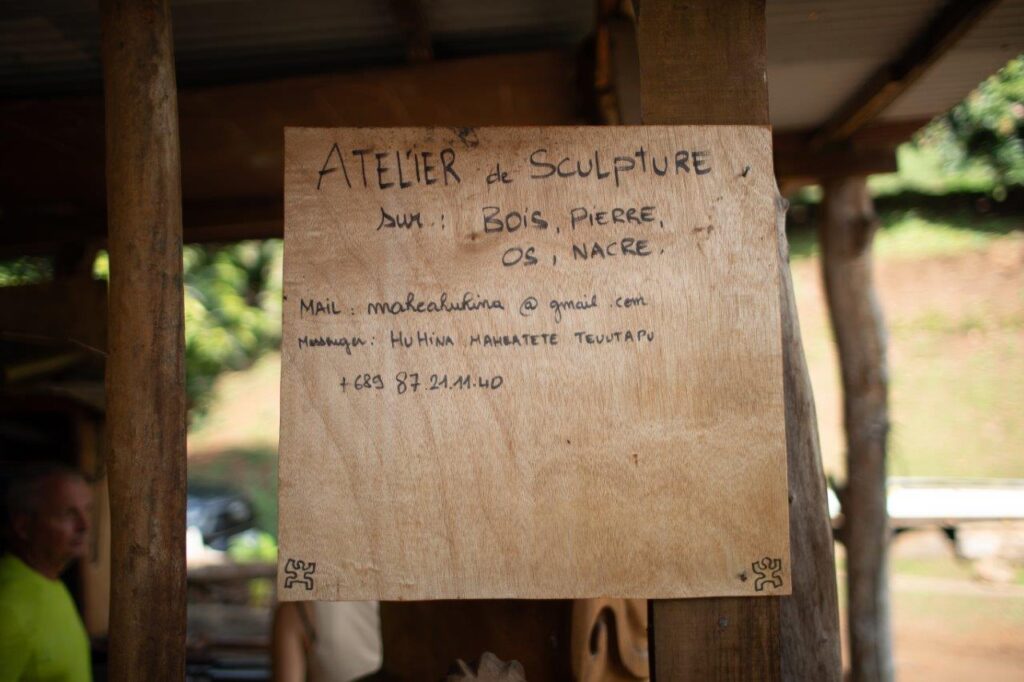 ATELIER de SCULPTURE
sur : BOIS, PIERRE,
OS, NACRE.
MAIL : maheahuhina @ gmail .com
Messenger : HUHINA MAHEATETE TEUUTAPU
+689 87.21.11.40